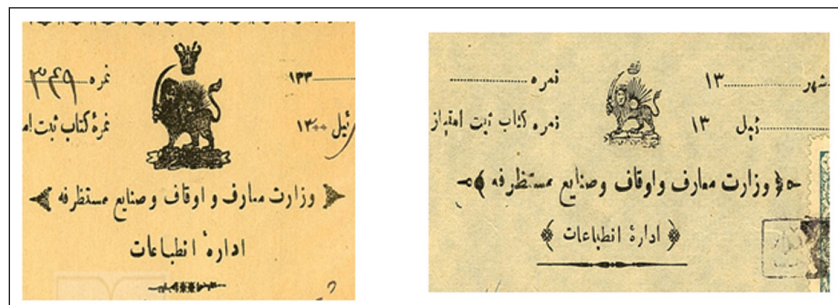 نمره ۳۴۹
۱۳۳
نمرهٔ کتاب ثبت
ئیل ۱۳۰۰
وزارت معارف و اوقاف و صنایع مستظرفه
ادارهٔ انطباعات
نمره
شهر ۱۳
نمره کتاب ثبت امتیاز
ئیل ۱۳
وزارت معارف و اوقاف و صنایع مستظرفه
ادارهٔ انطباعات